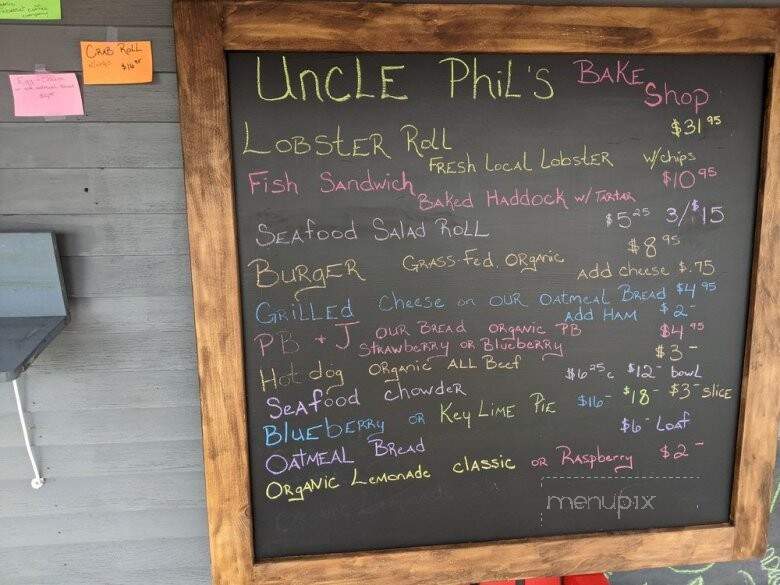 CRAB ROLL
$16
UNCLE PHIL'S BAKE Shop
LOBSTER Roll $31 95
FRESH Local Lobster w/chips
Fish Sandwich $10 95
Baked Haddock w/ Tartar
SEAfood Salad Roll $5 25 3/$15
BURGER GRASS-Fed, ORganic $8 95
Add cheese $.75
GRILLEd Cheese on OUR OATMEAL BREAD $4 95
Add HAM $2-
PB + J OUR BREAD ORGANIC PB $4 95
STRAWbeRRy OR BluebeRRy
Hot dog ORGANIC ALL Beef $3-
SEAfood chowdeR $6 25 c $12- bowl
BLUEbERRy OR KEY LIME PIE $16- $18- $3- SLICE
OATMEAL BREAD $6- LoAf
ORgANIC LEMONAde classic OR RAspbeRRy $2-
menupix